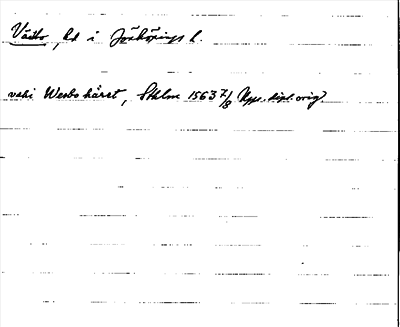 Västbo, hd i Jönköpings l.
vdi Wesbo häret, Sthlm 1563 7/8 Upps. dipl. orig.